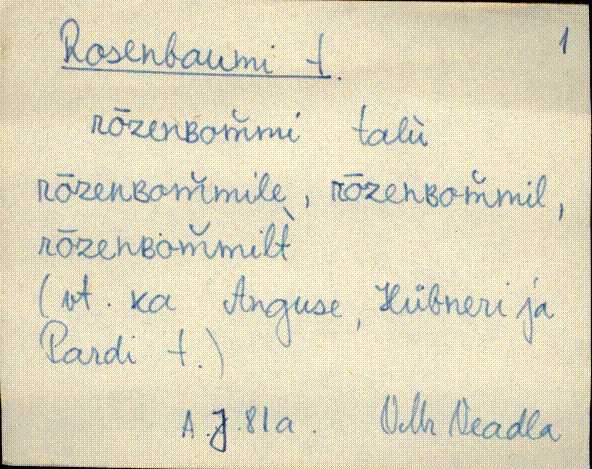 Rosenbaumi t. 1
rōzenʙom̆mi talù
rōzenʙom̆mile, rōzenʙom̆mil,
rōzenʙom̆milt̀
(vt. ka Anguse, Hübneri ja
Pardi t.)
A.J. 81a. Veadla